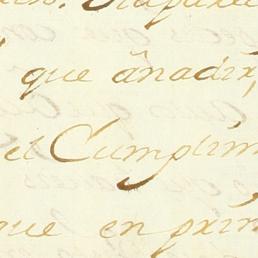 que añadir,
el Cumplim
que en prim